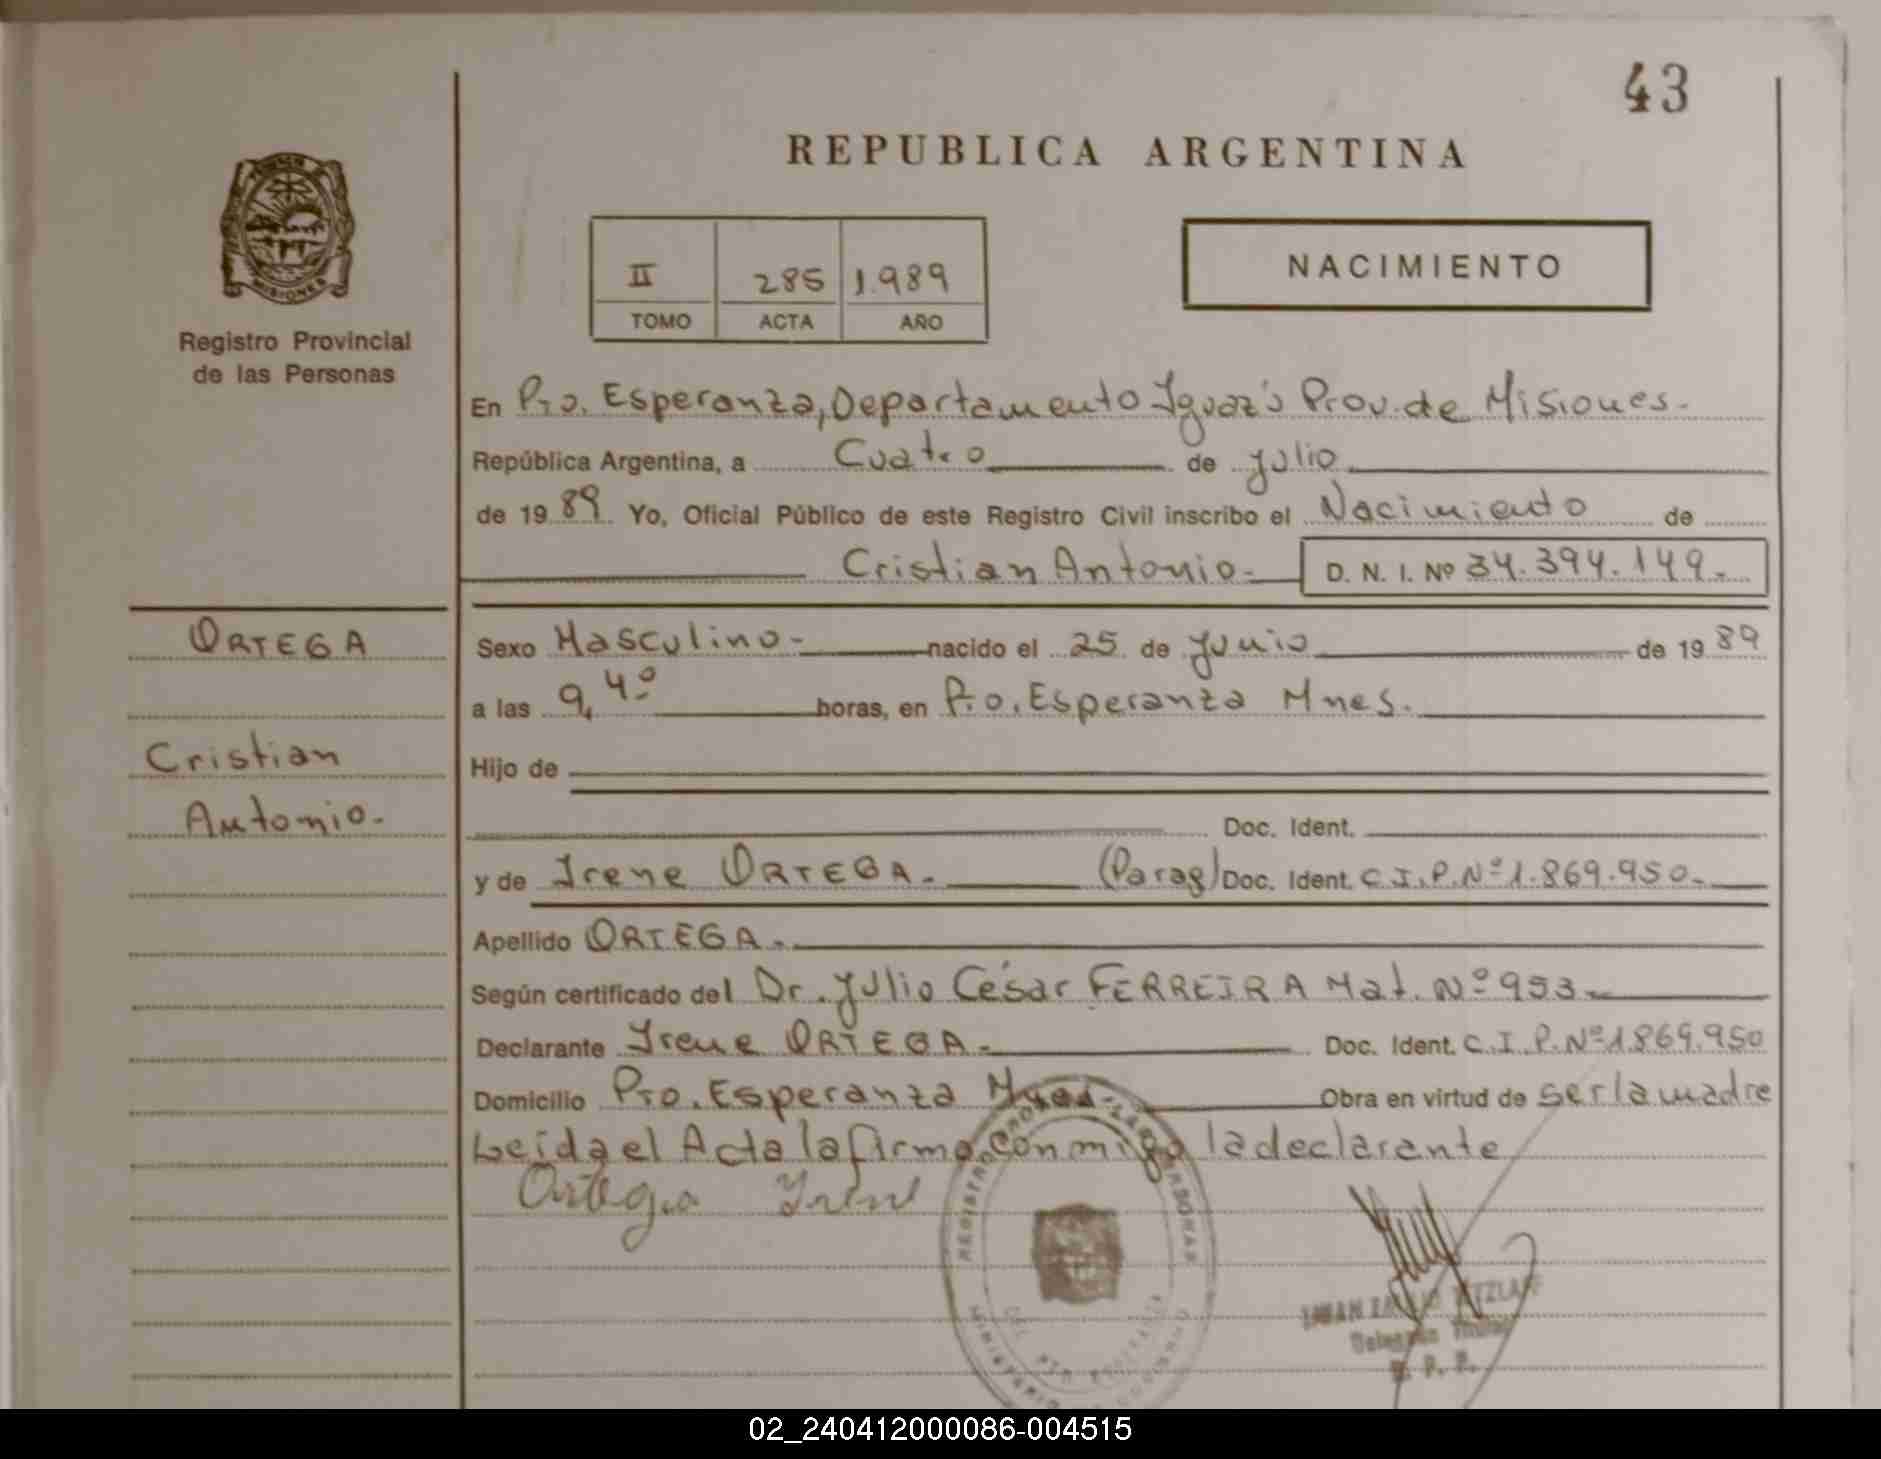 43
REPUBLICA ARGENTINA
MISIONES
Registro Provincial
de las Personas
II 285 1.989
TOMO ACTA AÑO
NACIMIENTO
En Pto. Esperanza, Departamento Iguazú Prov. de Misiones-
República Argentina, a Cuatro de julio
de 1989 Yo, Oficial Público de este Registro Civil inscribo el Nacimiento de
Cristian Antonio- D. N. I. Nº 34.394.149.-
ORTEGA
Cristian
Antonio-
Sexo Masculino- nacido el 25 de junio de 1989
a las 9,40 horas, en Pto. Esperanza Mnes.
Hijo de
Doc. Ident.
y de Irene ORTEGA.- (Parag) Doc. Ident. C.I.P.Nº 1.869.950.-
Apellido ORTEGA.-
Según certificado del Dr. Julio César FERREIRA Mat. Nº 953.-
Declarante Irene ORTEGA.- Doc. Ident. C.I.P.Nº 1.869.950
Domicilio Pto. Esperanza Obra en virtud de ser la madre
Leida el Acta la firma conmigo la declarante
Ortega Irene
REGISTRO
MINISTERIO
R. P. P.
02_240412000086-004515